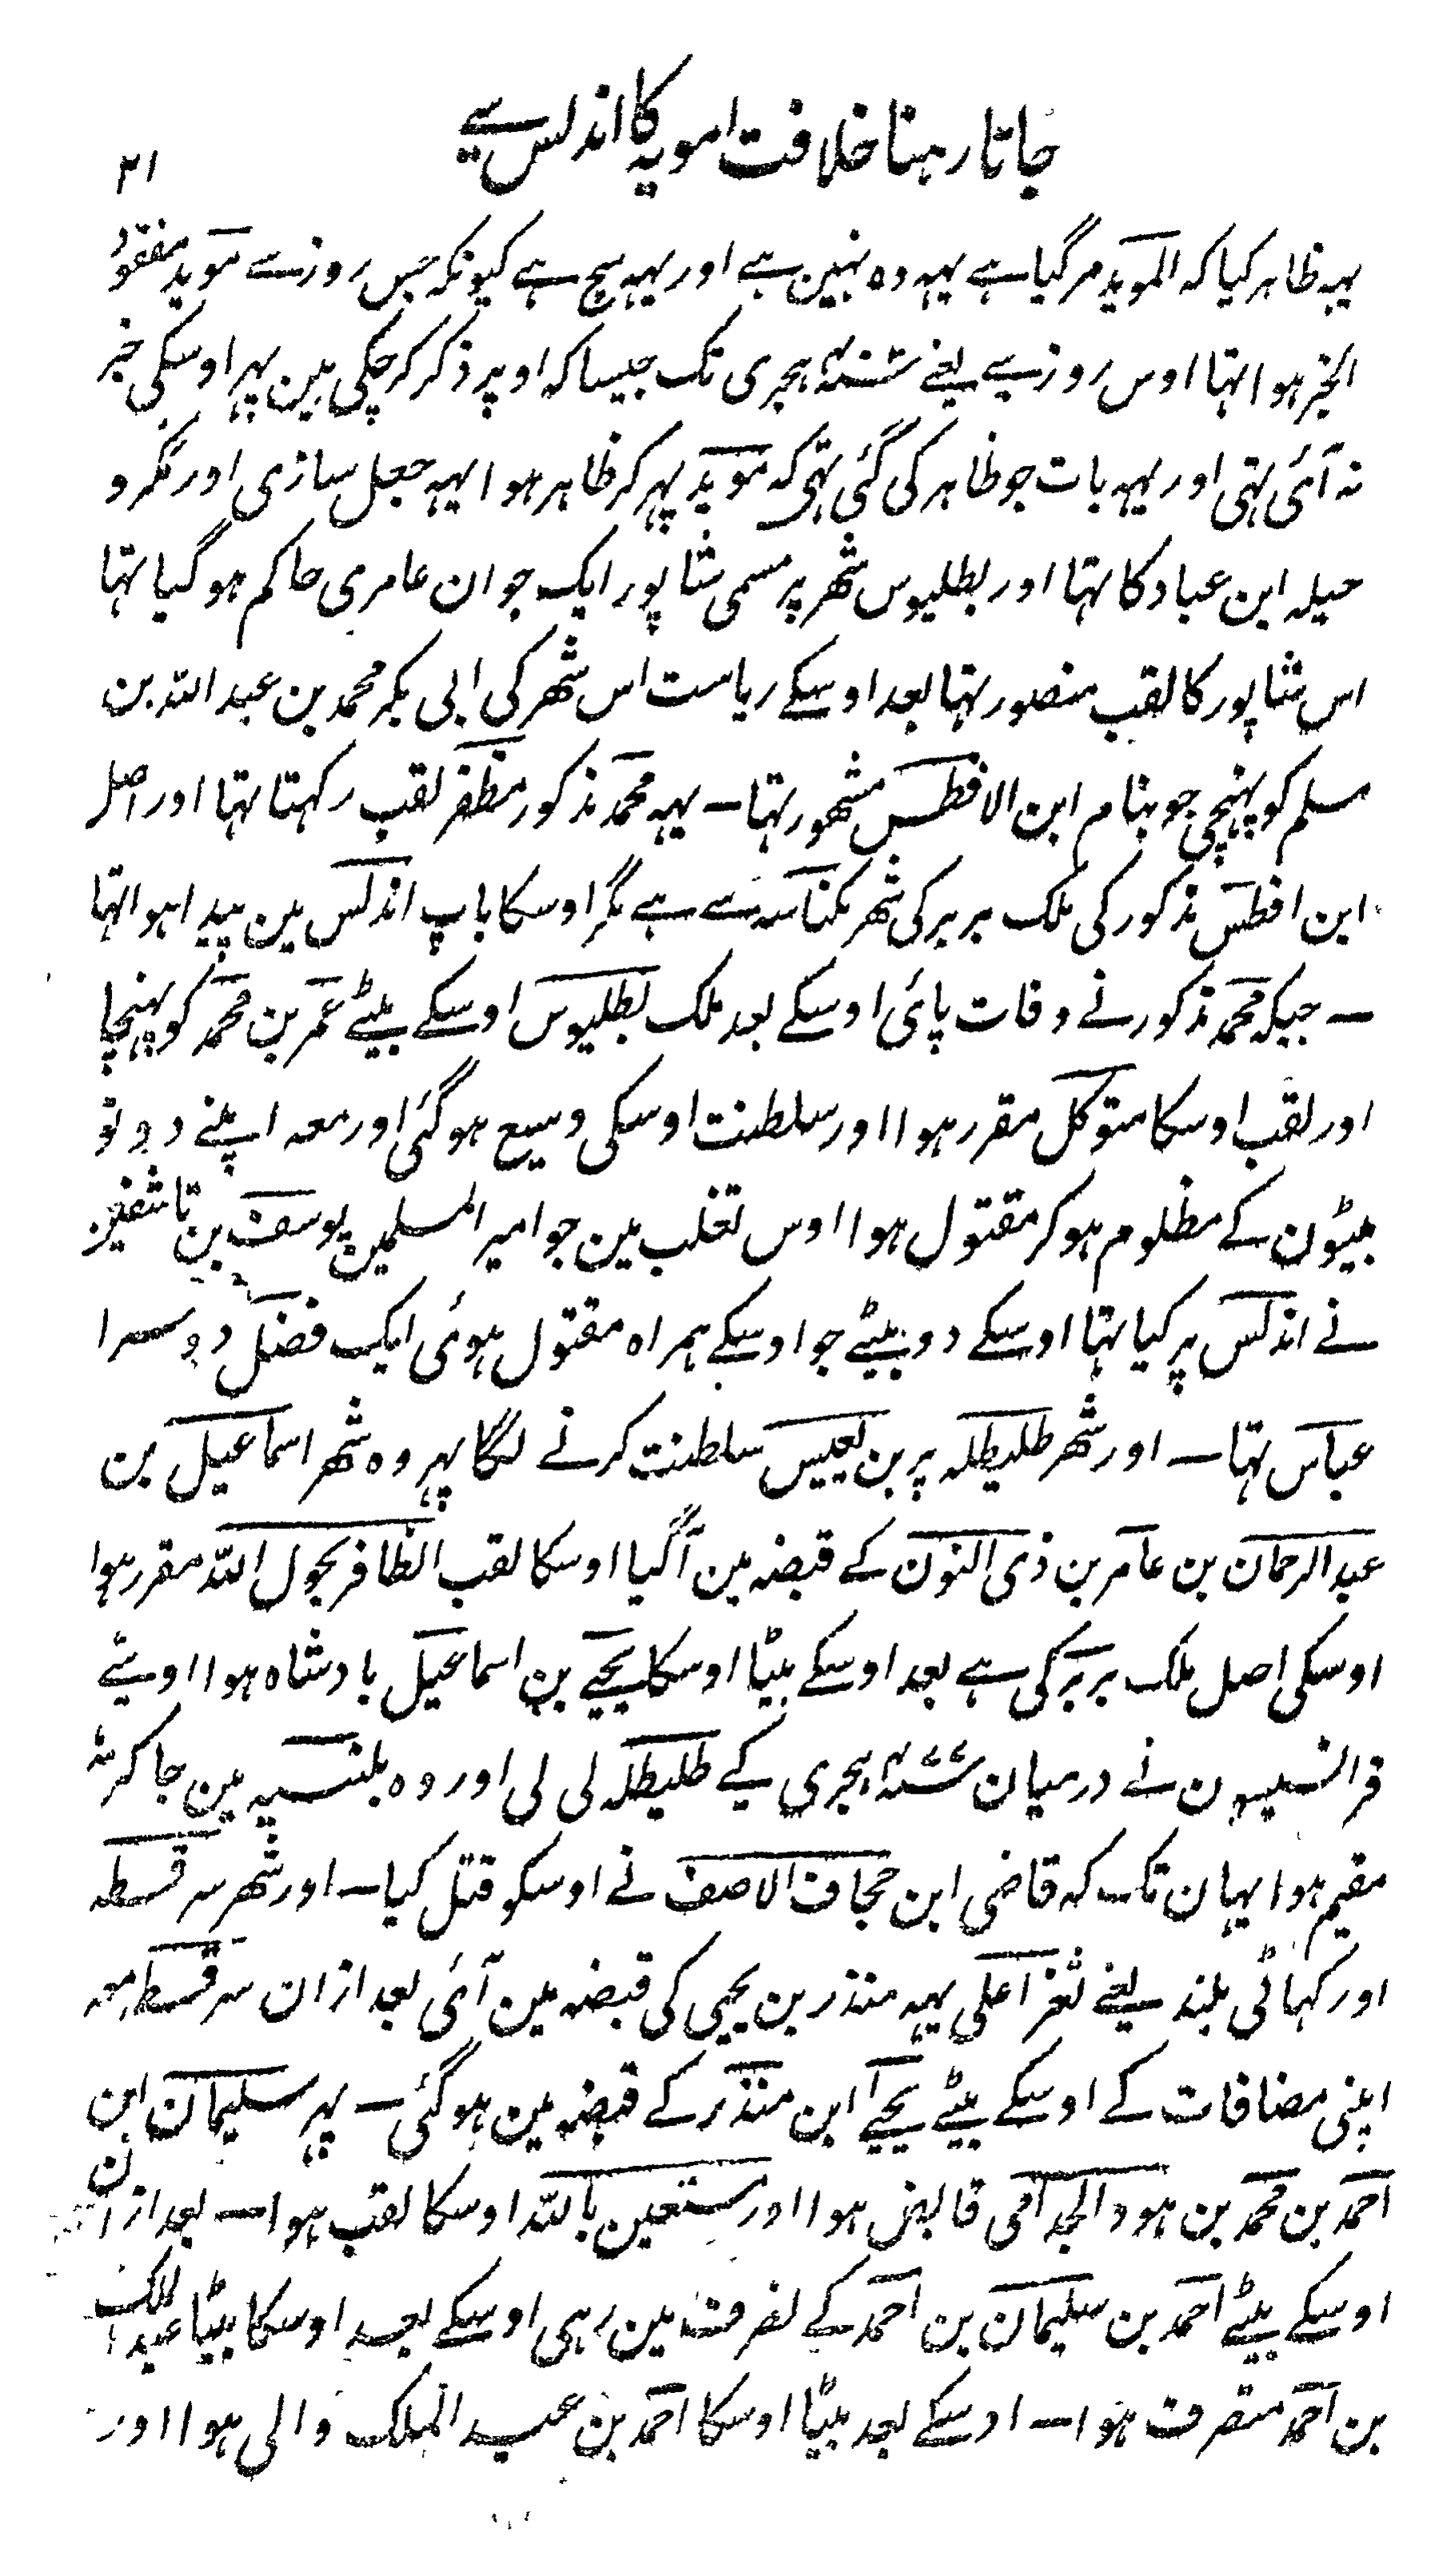 جاتا رہنا خلافت امویہ کا اندلس سے
۳۱
یہہ ظاہر کیا کہ المؤید مرگیا ہے یہہ وہ نہین ہے اور یہہ سچ ہے کیونکہ جس روز سے موید مفقود
الخبر ہوا تہا اوس روز سے یعنے سنہ ہجری تک جیسا کہ اوپر ذکر کر چکی ہین پہر اوسکی خبر
نہ آئی تہی اور یہہ بات جو ظاہر کی گئی تہی کہ موید پہر کر ظاہر ہوا یہہ جعل سازی اور مکر و
حیلہ ابن عباد کا تہا اور بطلیوس شہر پر مسمی شاپور ایک جوان عامری حاکم ہو گیا تہا
اس شاپور کا لقب منصور تہا بعد اوسکے ریاست اس شہر کی ابی بکر محمد بن عبد اللہ بن
مسلم کو پہنچی جو بنام ابن الافطس مشہور تہا ـ یہہ محمد مذکور مظفر لقب رکہتا تہا اور اصل
ابن افطس مذکور کی ملک بربر کی شہر مکناسہ سے ہے مگر اوسکا باپ اندلس مین پیدا ہوا تہا
ـ جبکہ محمد مذکور نے وفات پائی اوسکے بعد ملک بطلیوس اوسکے بیٹے عمر بن محمد کو پہنچا
اور لقب اوسکا متوکل مقرر ہوا اور سلطنت اوسکی وسیع ہوگئی اور معہ اپنے دونو
بیٹون کے مظلوم ہوکر مقتول ہوا اوس تغلب مین جو امیر المسلمین یوسف بن تاشفین
نے اندلس پر کیا تہا اوسکے دو بیٹے جو اوسکے ہمراہ مقتول ہوئی ایک فضل دوسرا
عباس تہا ـ اور شہر طلیطلہ پر بن یعیس سلطنت کرنے لگا پہر وہ شہر اسماعیل بن
عبد الرحمان بن عامر بن ذی النون کے قبضہ مین آگیا اوسکا لقب الظافر بحول اللہ مقرر ہوا
اوسکی اصل ملک بربر کی ہے بعد اوسکے بیٹا اوسکا یحیے بن اسماعیل بادشاہ ہوا اوسنے
فرانسیسون نے درمیان سنہ ۴۷۷ ہجری کے طلیطلہ لی لی اور وہ بلنسیہ مین جا کر
مقیم ہوا یہان تک کہ قاضی ابن حجاف الاصف نے اوسکو قتل کیا ـ اور شہر سرقسطہ
اور کہاٹی بلند یعنے ثغر اعلی یہہ منذر بن یحیی کی قبضہ مین آئی بعد ازان سرقسطہ معہ
اپنی مضافات کے اوسکے بیٹے یحیے ابن منذر کے قبضہ مین ہوگئی ـ پہر سلیمان ابن
احمد بن محمد بن ہود الجذامی قابض ہوا اور مستعین باللہ اوسکا لقب ہوا ـ بعد ازان
اوسکے بیٹے احمد بن سلیمان بن احمد کے تصرف مین رہی اوسکے بعد اوسکا بیٹا عبد الملک
بن احمد متصرف ہوا ـ اوسکے بعد بیٹا اوسکا احمد بن عبد الملک والی ہوا اور